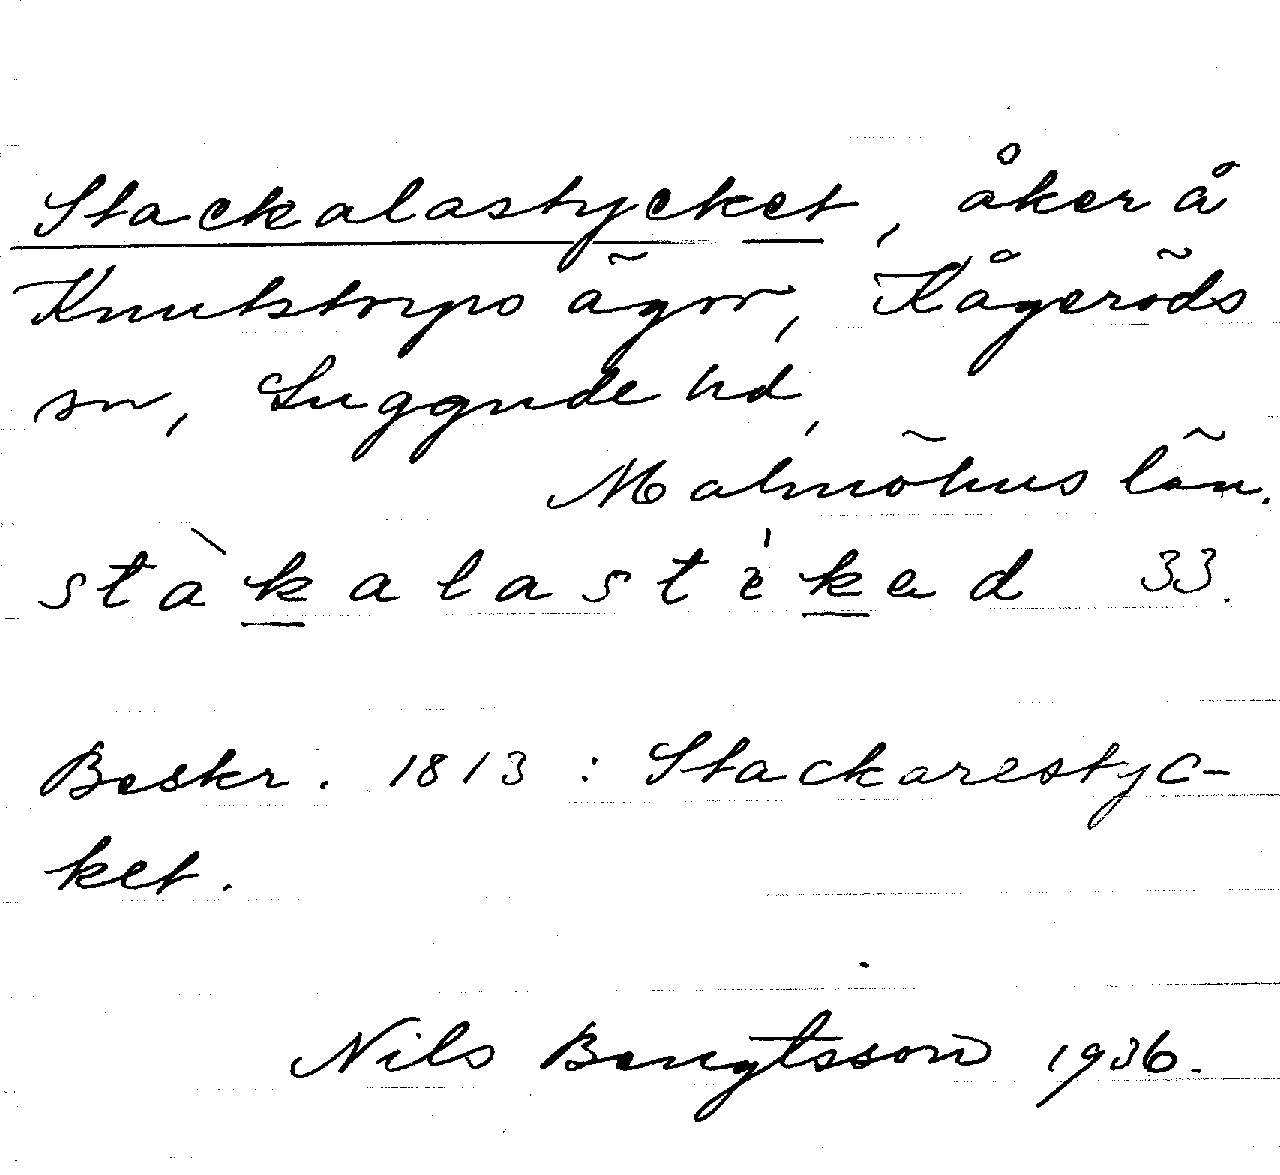 Stackalastycket, åker å
Knutstorps ägor, Kågeröds
sn, Luggude hd,
Malmöhus län.
stàkalastikad 33.
Beskr. 1813 : Stackarestyc-
ket.
Nils Bengtsson 1936.